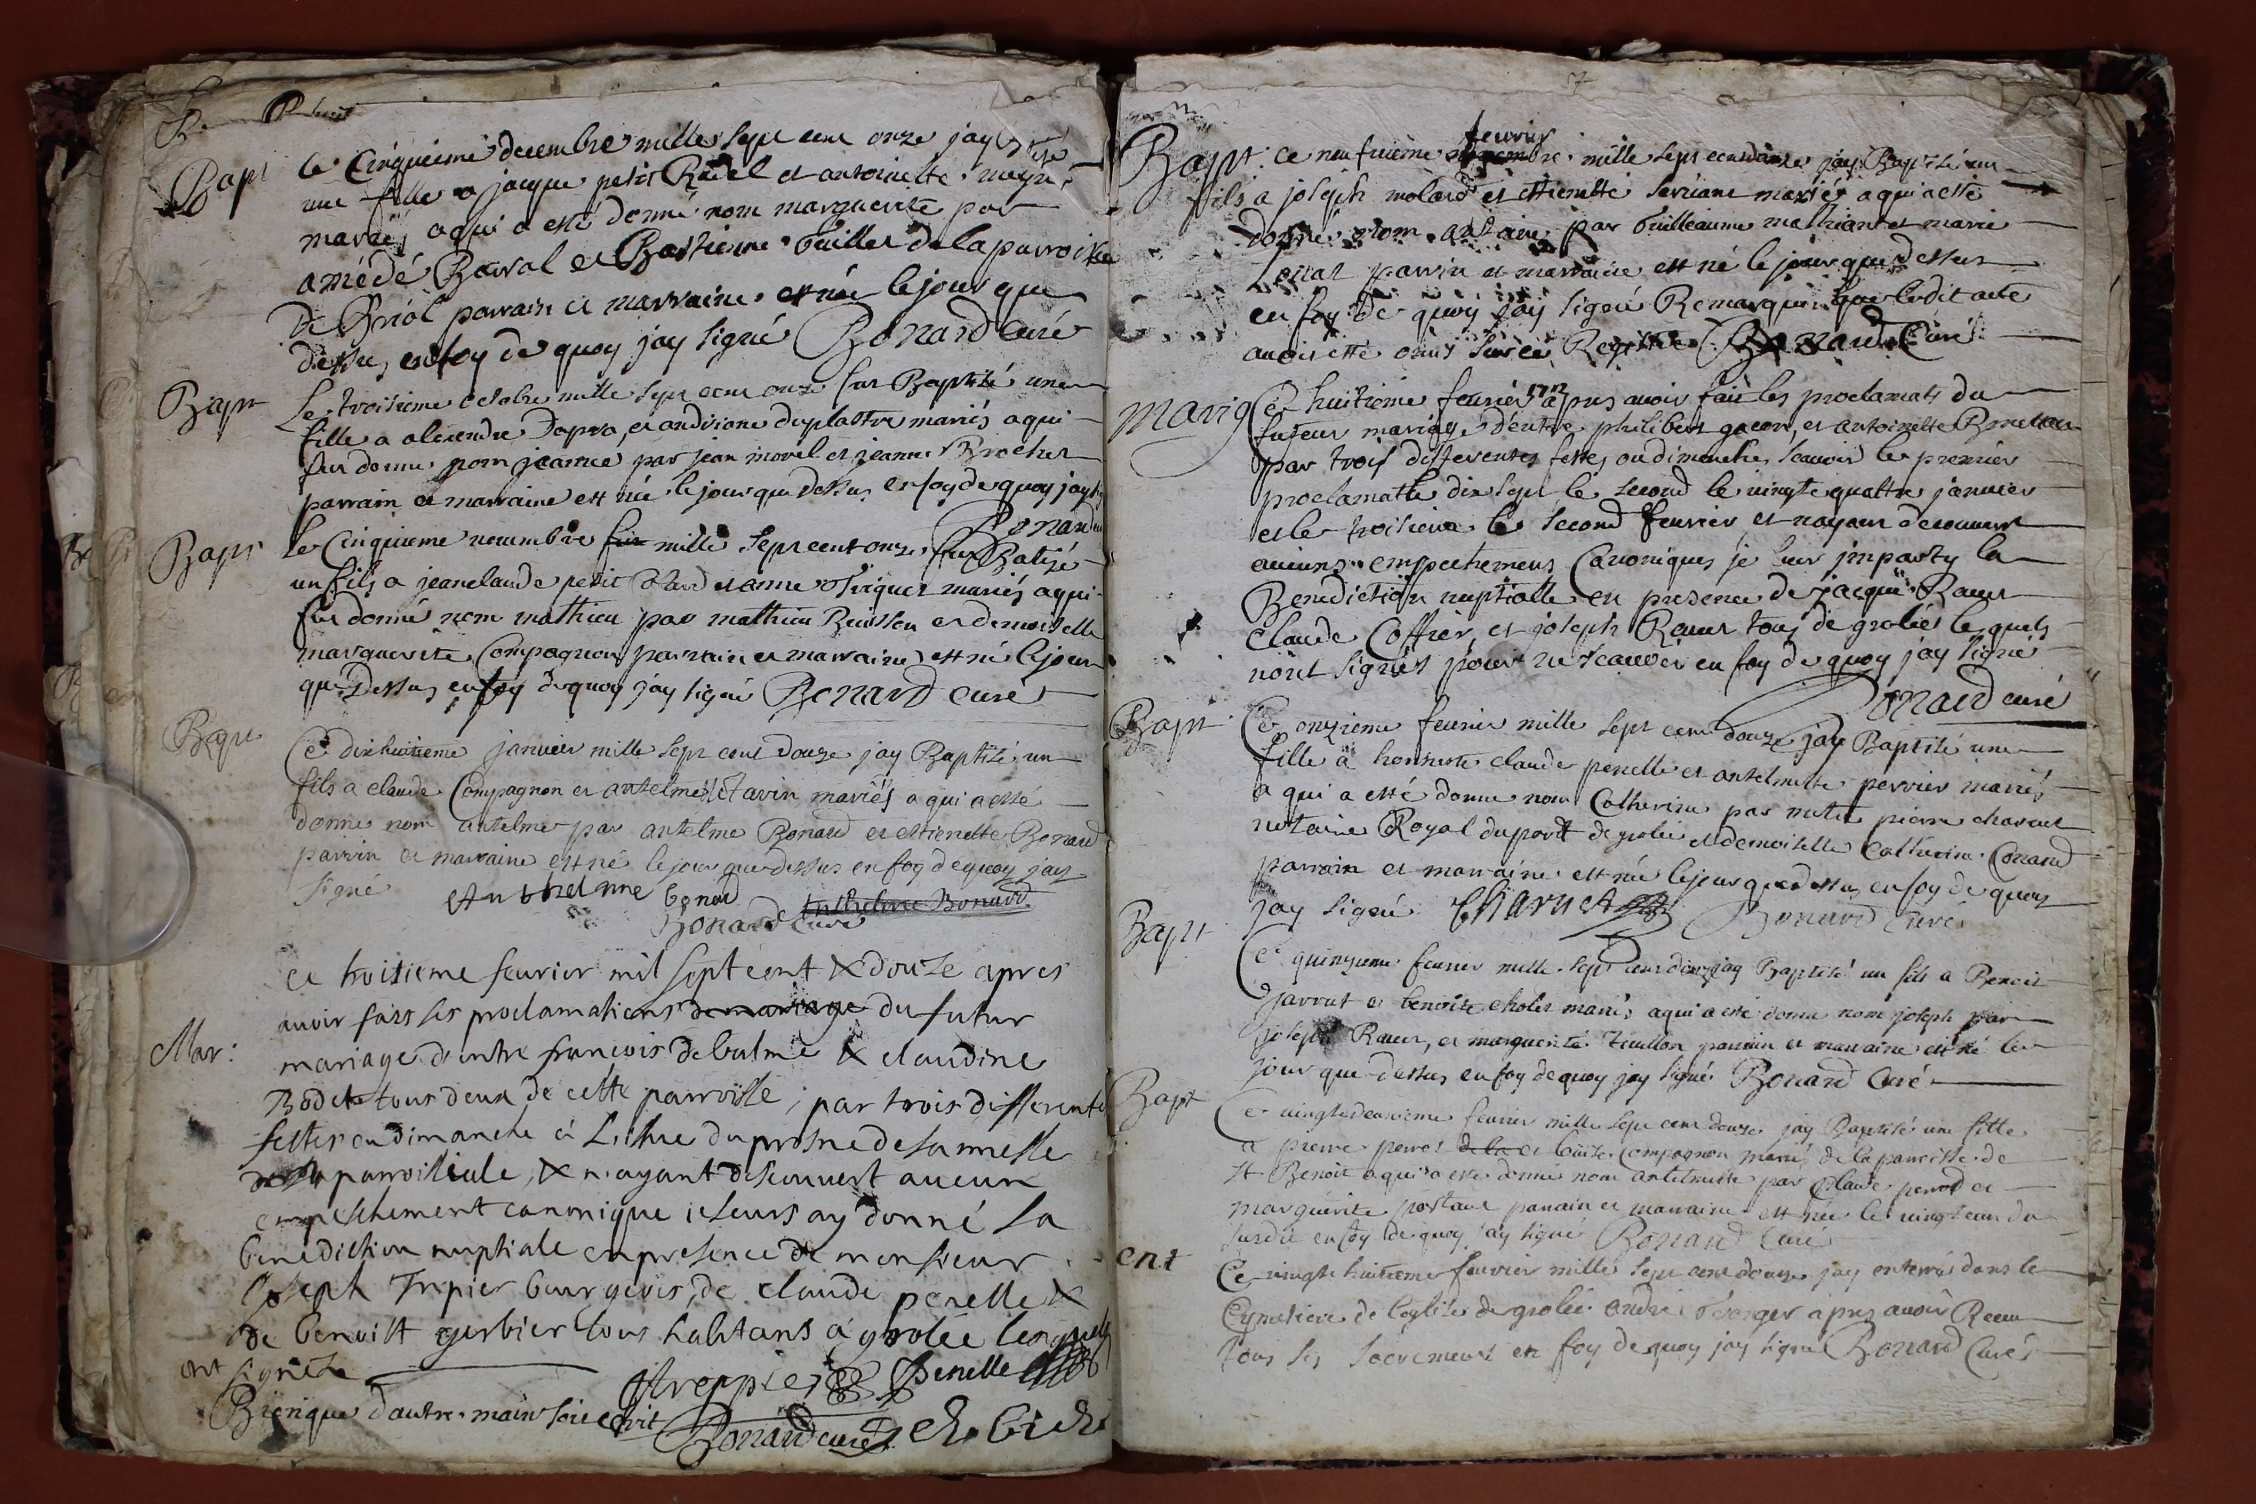 Bapt
le Cinquieme decembre mille sept cent onze jay Baptisé
une fille a jacque petit Rudel et antoinette
mariés aqui a esté donné nom marguerite par
amédé Barral et Bastienne Guillet de la parroisse
De Briol parrain et marraine et née le jour que
dessus enfoy de quoy jay signé Bonard Curé
Bapt
Le troisieme octobre mille sept cent onze fut Baptisé une
fille a alexendre Dapra, et andriane duplattre mariés aqui
fut donné nom jeanne par jean morel et jeanne Brochet
parrain et marraine est née le jour que dessus enfoy de quoy jay
Bonard
Bapt
le Cinquieme nouembre fut mille sept cent onze fut Batisé
un fils a jeanclaude petit Colard et anne mariés aqui
fut donné nom mathieu par mathieu Buisson et demoiselle
marguerite Compagnon parrain et marraine est né le jour
que Dessus enfoy de quoy jay signé Bonard curé
Bapt
Ce dixhuitieme januier mille sept cent douze jay Baptisé un
fils a claude Compagnon et antelmette tavin mariés a qui a esté
donné nom antelme par antelme Bonard et estienette Bonard
parrin et marraine est né le jour que dessus enfoy de quoy jay
signé Anthelme bonard Anthelme Bonard
Bonard Curé
Mar:
ce troisieme feurier mil sept cent & douze apres
auoir fait les proclamations de mariage du futur
mariage d'entre françois debalme & claudine
Bodet tous deux de cette parroisse, par trois differente
festes ou dimanche à L'issue du prosne de la messe
parroissiale, & n'ayant descouuert aucun
empeschement canonique je leurs ay donné la
benediction nuptiale en presence de monsieur
Joseph Trepier bourgeois, de claude perelle &
de benoist gerbier tous habitans a grolée lesquels
ont signé
Bienque d'autre main soit ecrit
Bonard curé
7
Bapt: ce neufuieme nouembre feurier mille sept cent douze jay Baptisé un
fils a joseph molard et estienette seruant mariés a qui a esté
donné nom antoine par Guilleaume mathian et marie
parrin et marraine est né le jour que dessus
en foy de quoy jay signé Remarque que ledit acte
auoit esté omis sur ce Registre Bonard Curé
mariag
Ce huitieme feurier 1712 apres auoir fait les proclamats du
futeur mariage d'entre philibert gacon, et antoinette
par trois differentes festes ou dimanche, scauoir le premier
proclamath dix sept le second le vingte quattre januier
et le troisieme le second feurier et nayant decouuert
aucuns empechemens Canoniques je leur jmparty la
Benediction nuptialle en presence de jacque Raur
Claude Coffier, et joseph Raur tous de grolée lequels
n'ont signés pour ne scauoir en foy de quoy jay signé
Bonard curé
Bapt
Ce onzieme feurier mille sept cent douze jay Baptisé une
fille a honneste claude perelle et antelmette perrier mariés
a qui a esté donné nom Catherine par metre pierre charuet
notaire Royal du port de grolée et demoiselle Catherine Conard
parrain et marraine est née le jour que dessus enfoy de quoy
jay signé Charuet Bonard Curé
Bapt
Ce quinzieme feurier mille sept cent douze jay Baptisé un fils a Benoit
jarrut et benoite cholet mariés aqui a esté donné nom joseph par
joseph Raur, et marguerite parrain et marraine est né le
jour que dessus enfoy de quoy jay signé Bonard Curé
Bapt
Ce vingtedeuxieme feurier mille sept cent douze jay Baptisé une fille
a pierre perret de la et Compagnon mariés de la parroisse de
st Benoit aqui a esté donné nom antelmette par Claude perrod et
marguerite parrain et marraine est née le vingt un du
susdit enfoy de quoy jay signé Bonard Curé
ent
Ce vingte huitieme feurier mille sept cent douze jay enterré dans le
Cymetiere de leglise de grolée andré apres auoir Receu
tous les sacremens en foy de quoy jay signé Bonard Curé